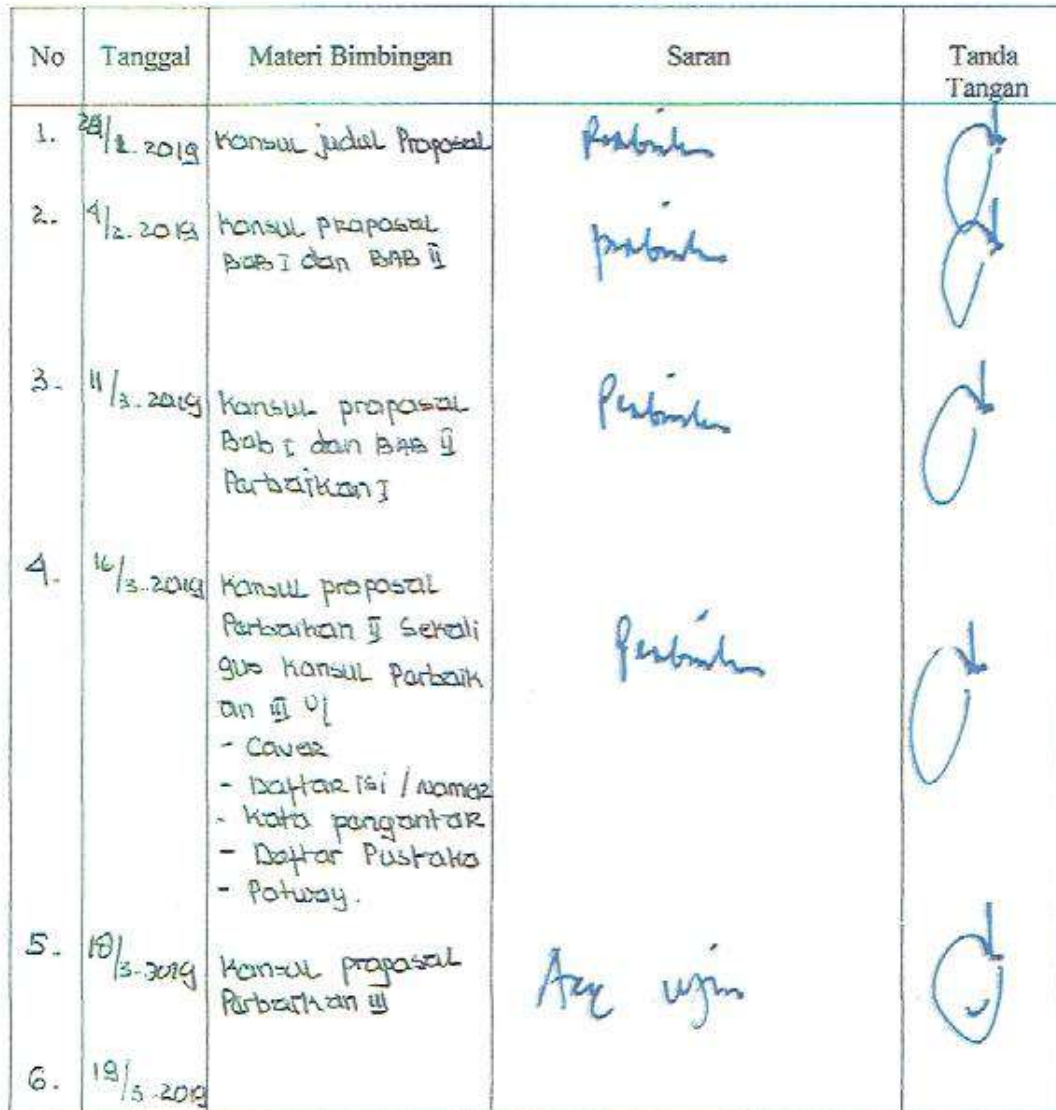 No Tanggal Materi Bimbingan Saran Tanda
Tangan
1. 2019 Konsul judul Proposal
2. 4/2.2019 Konsul proposal
Bab I dan BAB II
3. 11/3.2019 Konsul proposal
Bab I dan BAB II
Perbaikan I
4. 16/3.2019 Konsul proposal
Perbaikan II Sekali
gus konsul Perbaik
an III
- Cover
- Daftar isi / Nomor
- Kata pengantar
- Daftar Pustaka
- Patway.
5. 18/3.2019 Konsul proposal Acc ujin
Perbaikan III
6. 19/3.2019